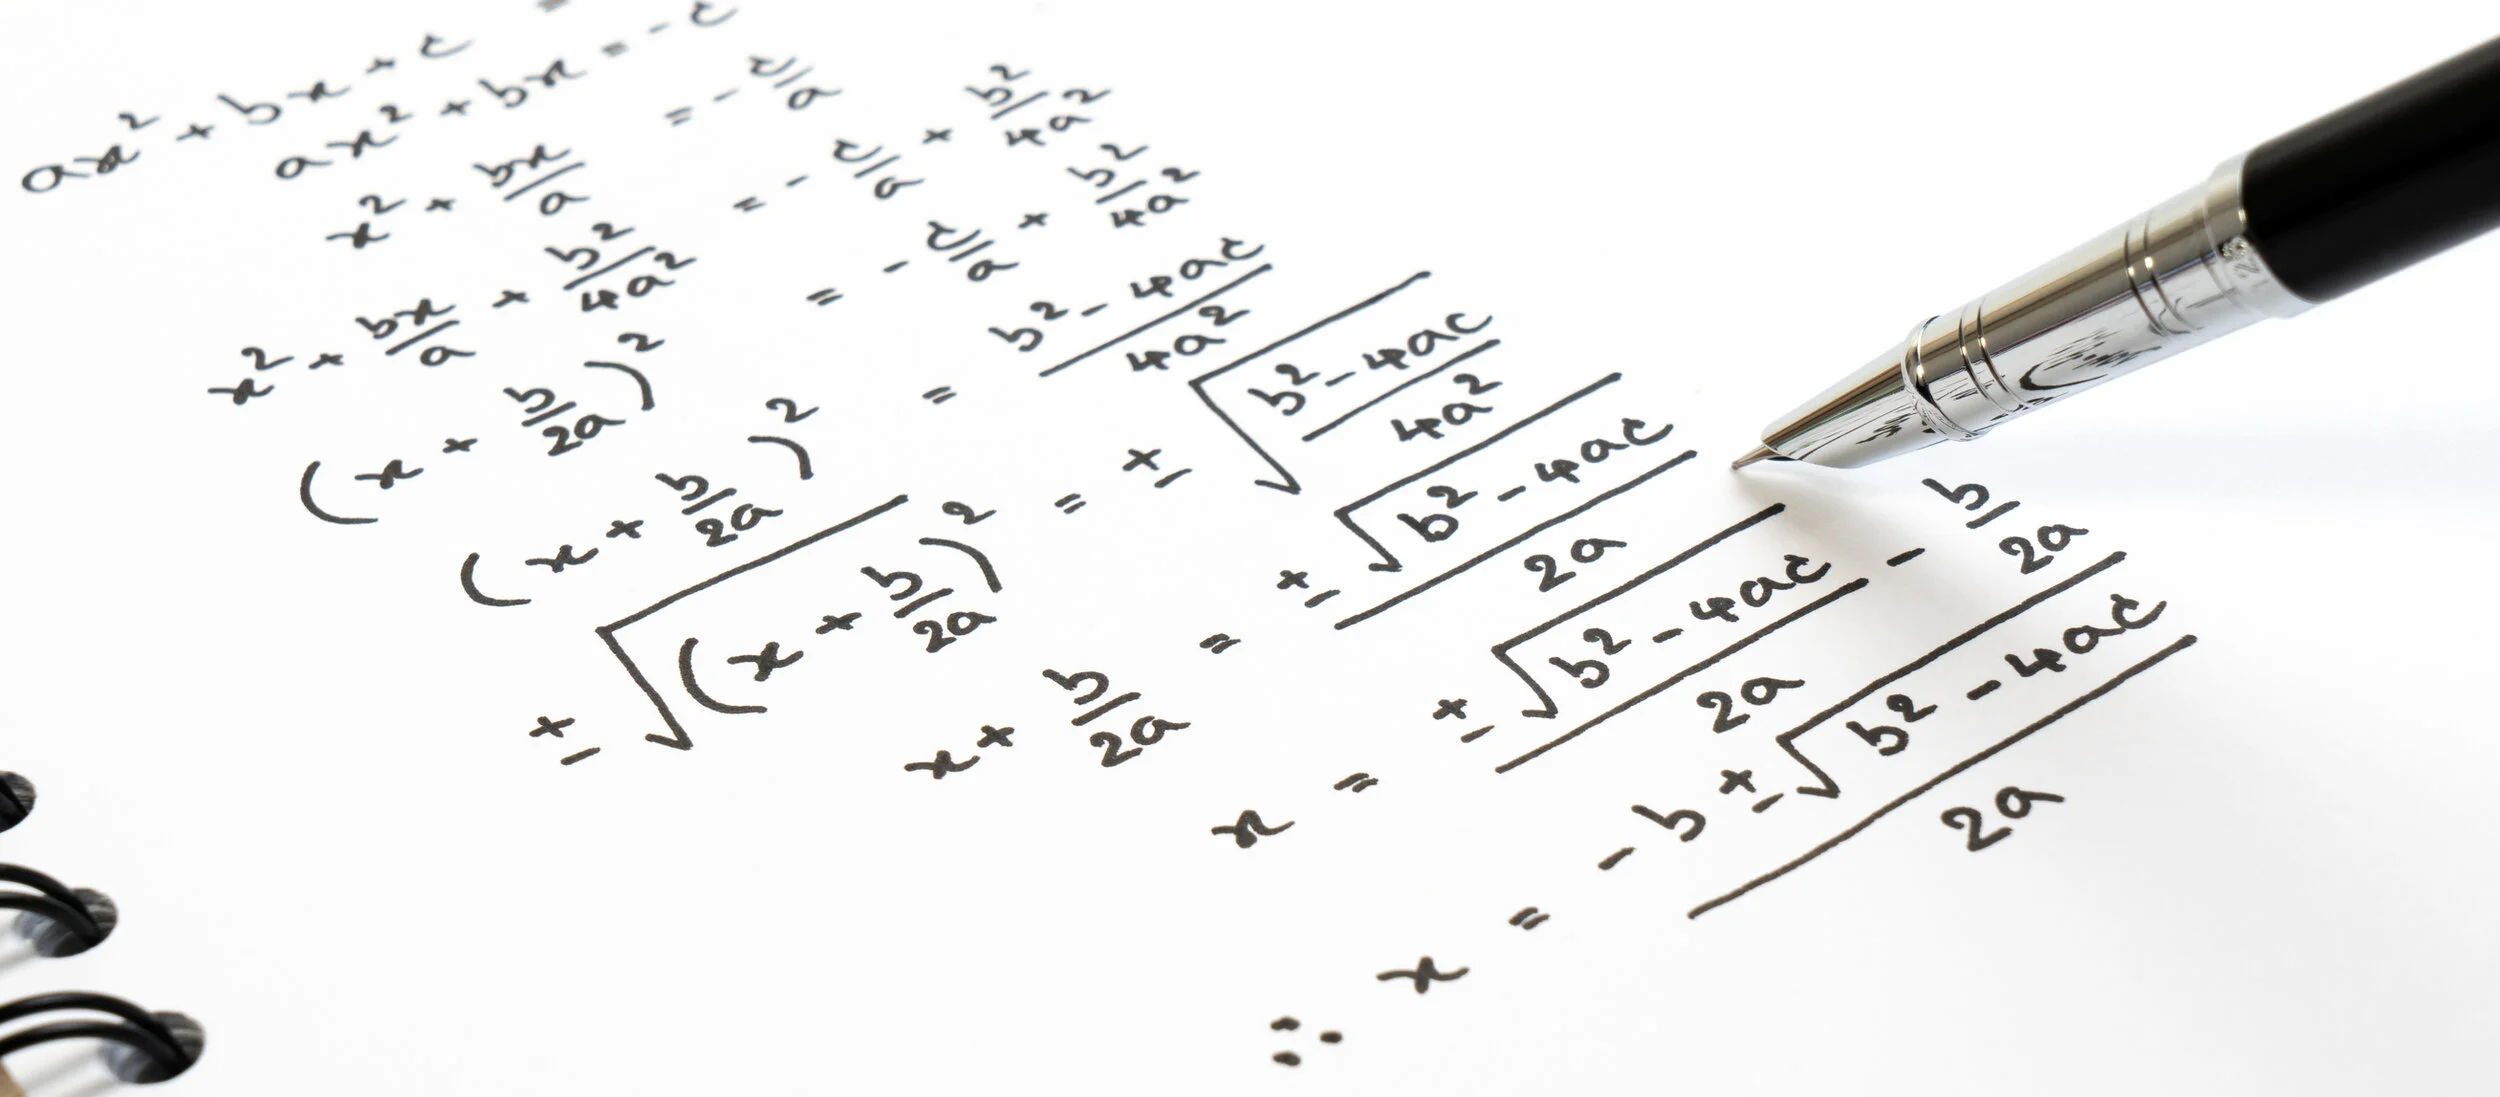 ax² + bx + c =
ax² + bx = - c
x² + bx/a = - c/a
x² + bx/a + b²/4a² = - c/a + b²/4a²
(x + b/2a)² = - c/a + b²/4a²
(x + b/2a)² = b² - 4ac / 4a²
± √(x + b/2a)² = ± √(b² - 4ac / 4a²)
x + b/2a = ± √(b² - 4ac) / 2a
x = ± √(b² - 4ac) / 2a - b/2a
∴ x = - b ± √(b² - 4ac) / 2a